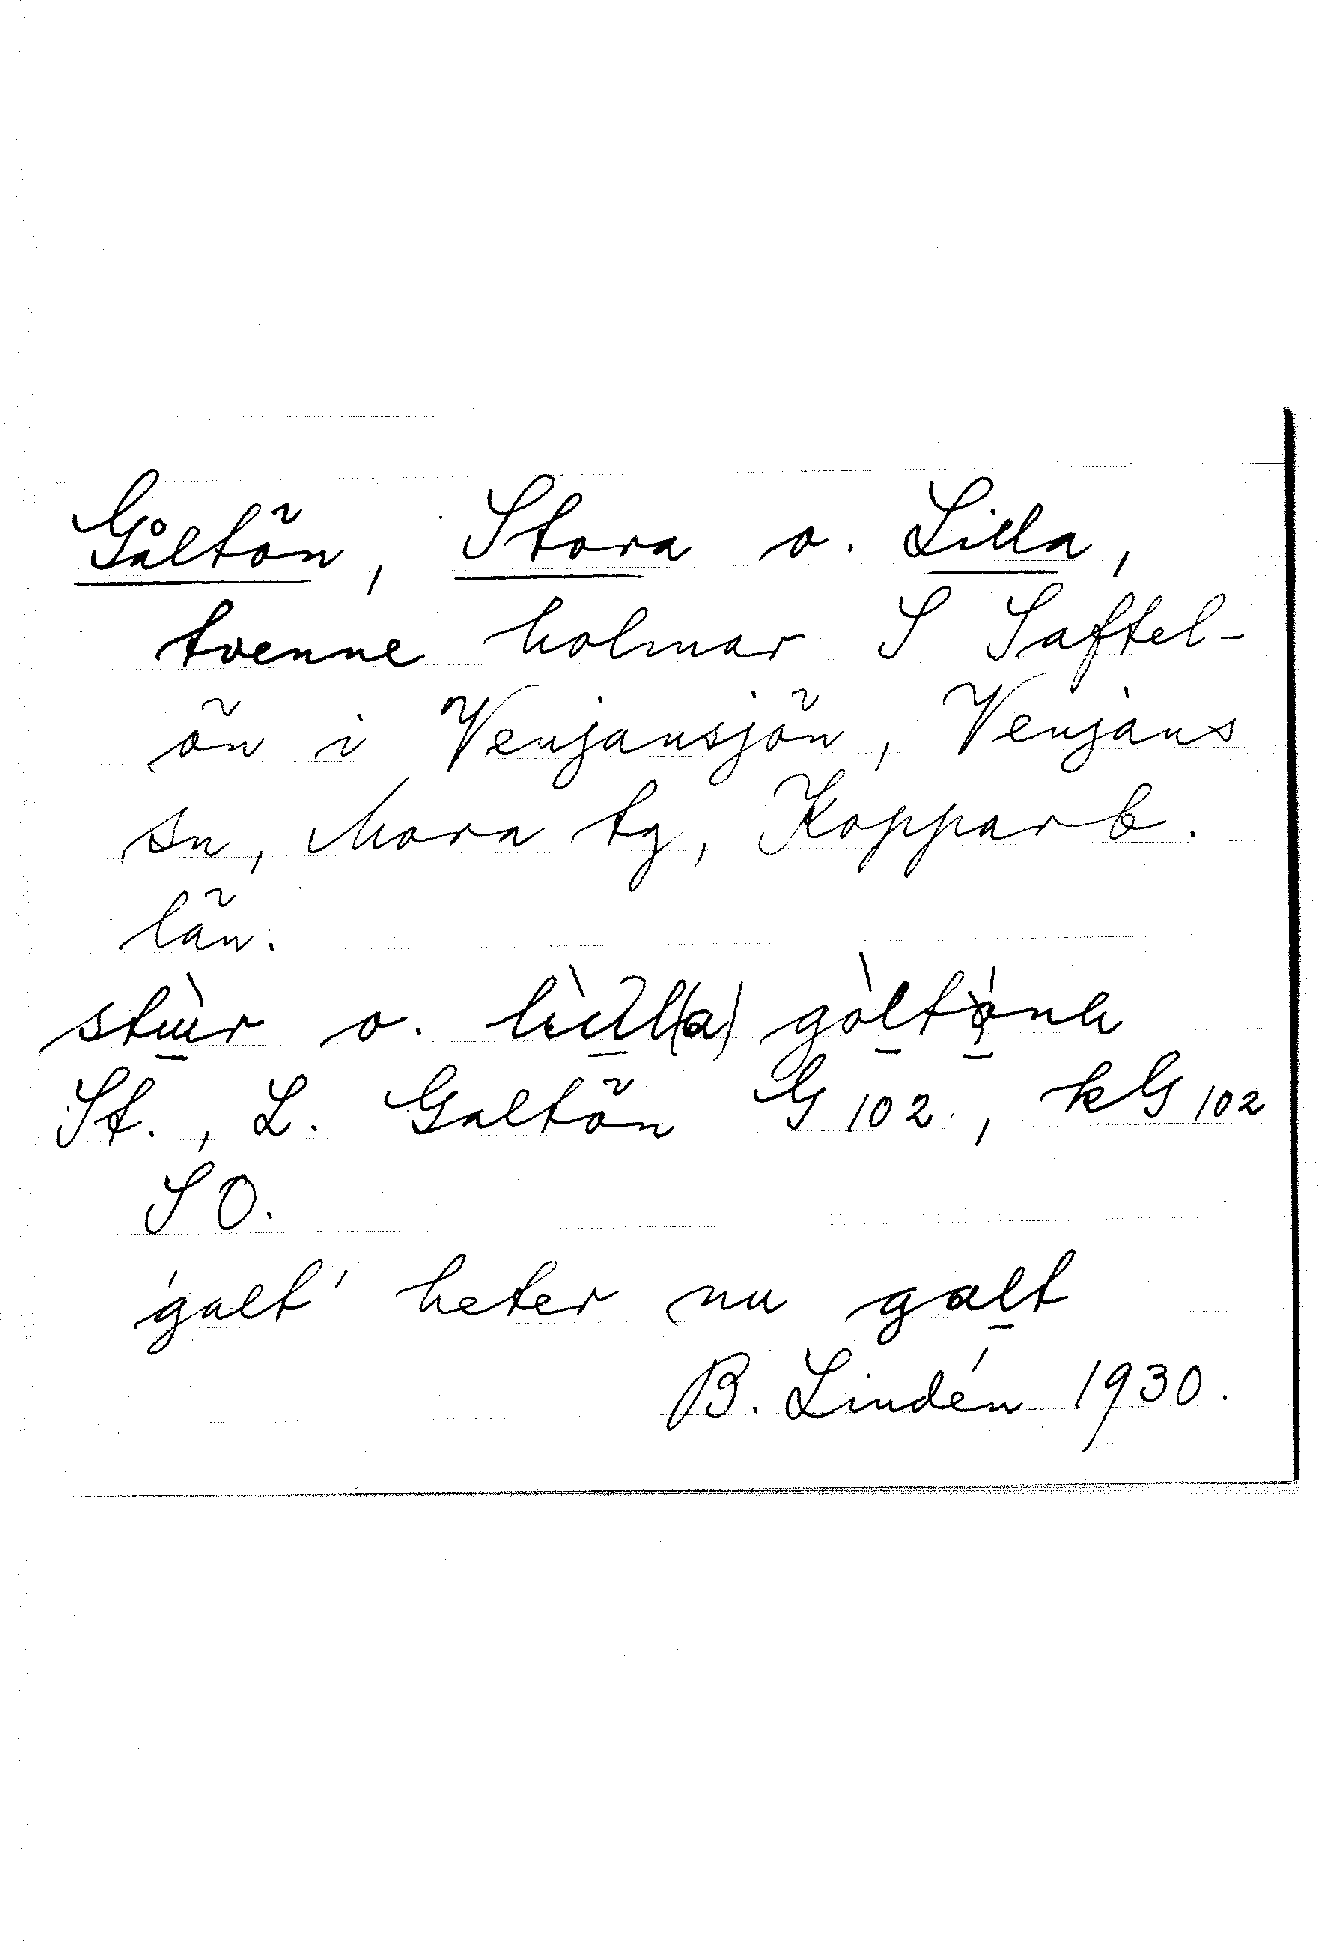 Gåltön, Stora o. Lilla,
tvenne holmar S Saftel-
ön i Venjansjön, Venjans
sn, Mora tg, Kopparb.
län.
o.
St., L. Galtön G 102, kG 102
SO.
'galt' heter nu galt
B. Lindén 1930.